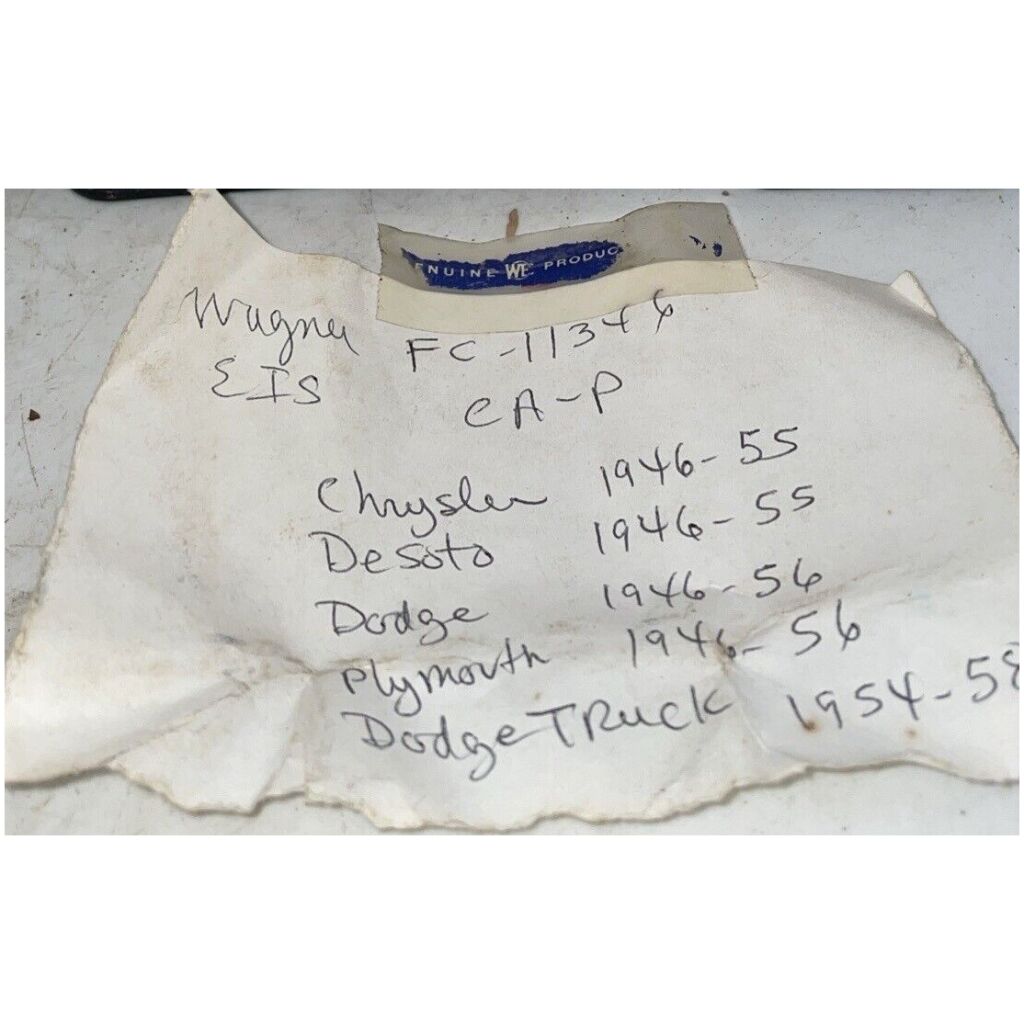 ENUINE WE PRODUC
Wagner FC-11346
EIS CA-P
Chrysler 1946-55
Desoto 1946-55
Dodge 1946-56
Plymouth 1946-56
Dodge TRuck 1954-58